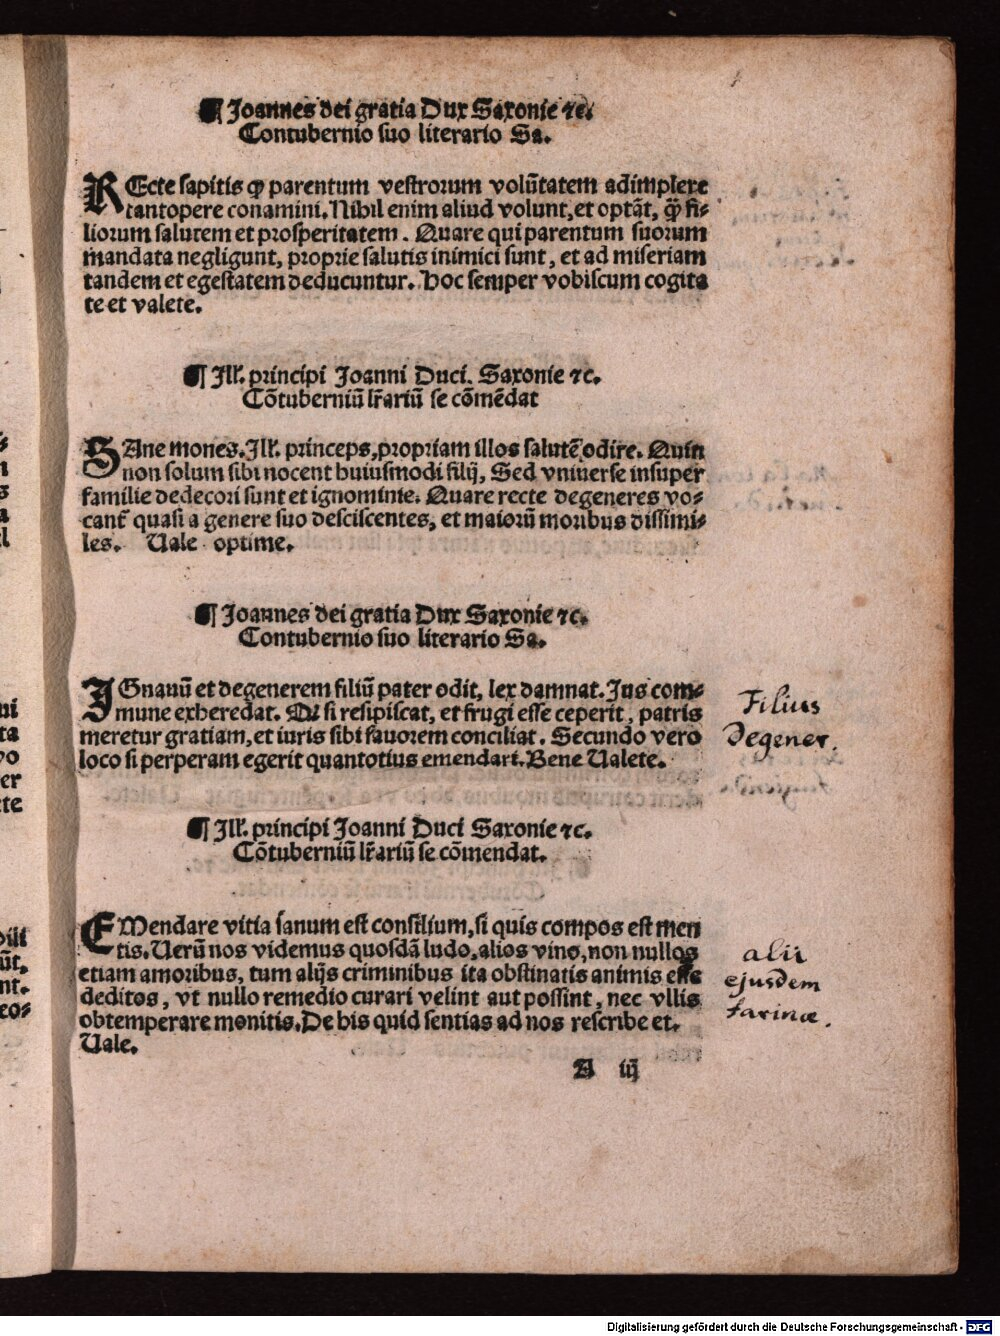 ¶ Joannes dei gratia Dux Saxonie ⁊c.
Contubernio suo literario Sa.
REcte sapitis ꝙ parentum vestrorum volũtatem adimplere
tantopere conamini. Nihil enim aliud volunt, et optãt, q̃ȝ fi-
liorum salutem et prosperitatem. Quare qui parentum suorum
mandata negligunt, proprie salutis inimici sunt, et ad miseriam
tandem et egestatem deducuntur. Hoc semper vobiscum cogita
te et valete.
¶ Ill. principi Joanni Duci. Saxonie ⁊c.
Cõtuberniũ lr̃ariũ se cõmẽdat
SAne mones. Ill. princeps, propriam illos salutẽ odire. Quin
non solum sibi nocent huiusmodi filij, Sed vniuerse insuper
familie dedecori sunt et ignominie. Quare recte degeneres vo-
cant᷑ quasi a genere suo desciscentes, et maiorũ moribus dissimi-
les. Uale optime.
¶ Joannes dei gratia Dux Saxonie ⁊c.
Contubernio suo literario Sa.
IGnauũ et degenerem filiũ pater odit, lex damnat. Jus com-
mune exheredat. At si resipiscat, et frugi esse ceperit, patris
meretur gratiam, et iuris sibi fauorem conciliat. Secundo vero
loco si perperam egerit quantotius emendari. Bene Ualete.
Filius
Degener.
¶ Ill. principi Joanni Duci Saxonie ⁊c.
Cõtuberniũ lr̃ariũ se cõmendat.
EMendare vitia sanum est consilium, si quis compos est men
tis. Uerũ nos videmus quosdã ludo, alios vino, non nullos
etiam amoribus, tum alijs criminibus ita obstinatis animis esse
deditos, vt nullo remedio curari velint aut possint, nec vllis
obtemperare monitis. De his quid sentias ad nos rescribe et.
Uale.
alii
ejusdem
farinæ.
A iij
ni
ta
vo
er
te
ũt,
nt.
eo-
Digitalisierung gefördert durch die Deutsche Forschungsgemeinschaft - DFG